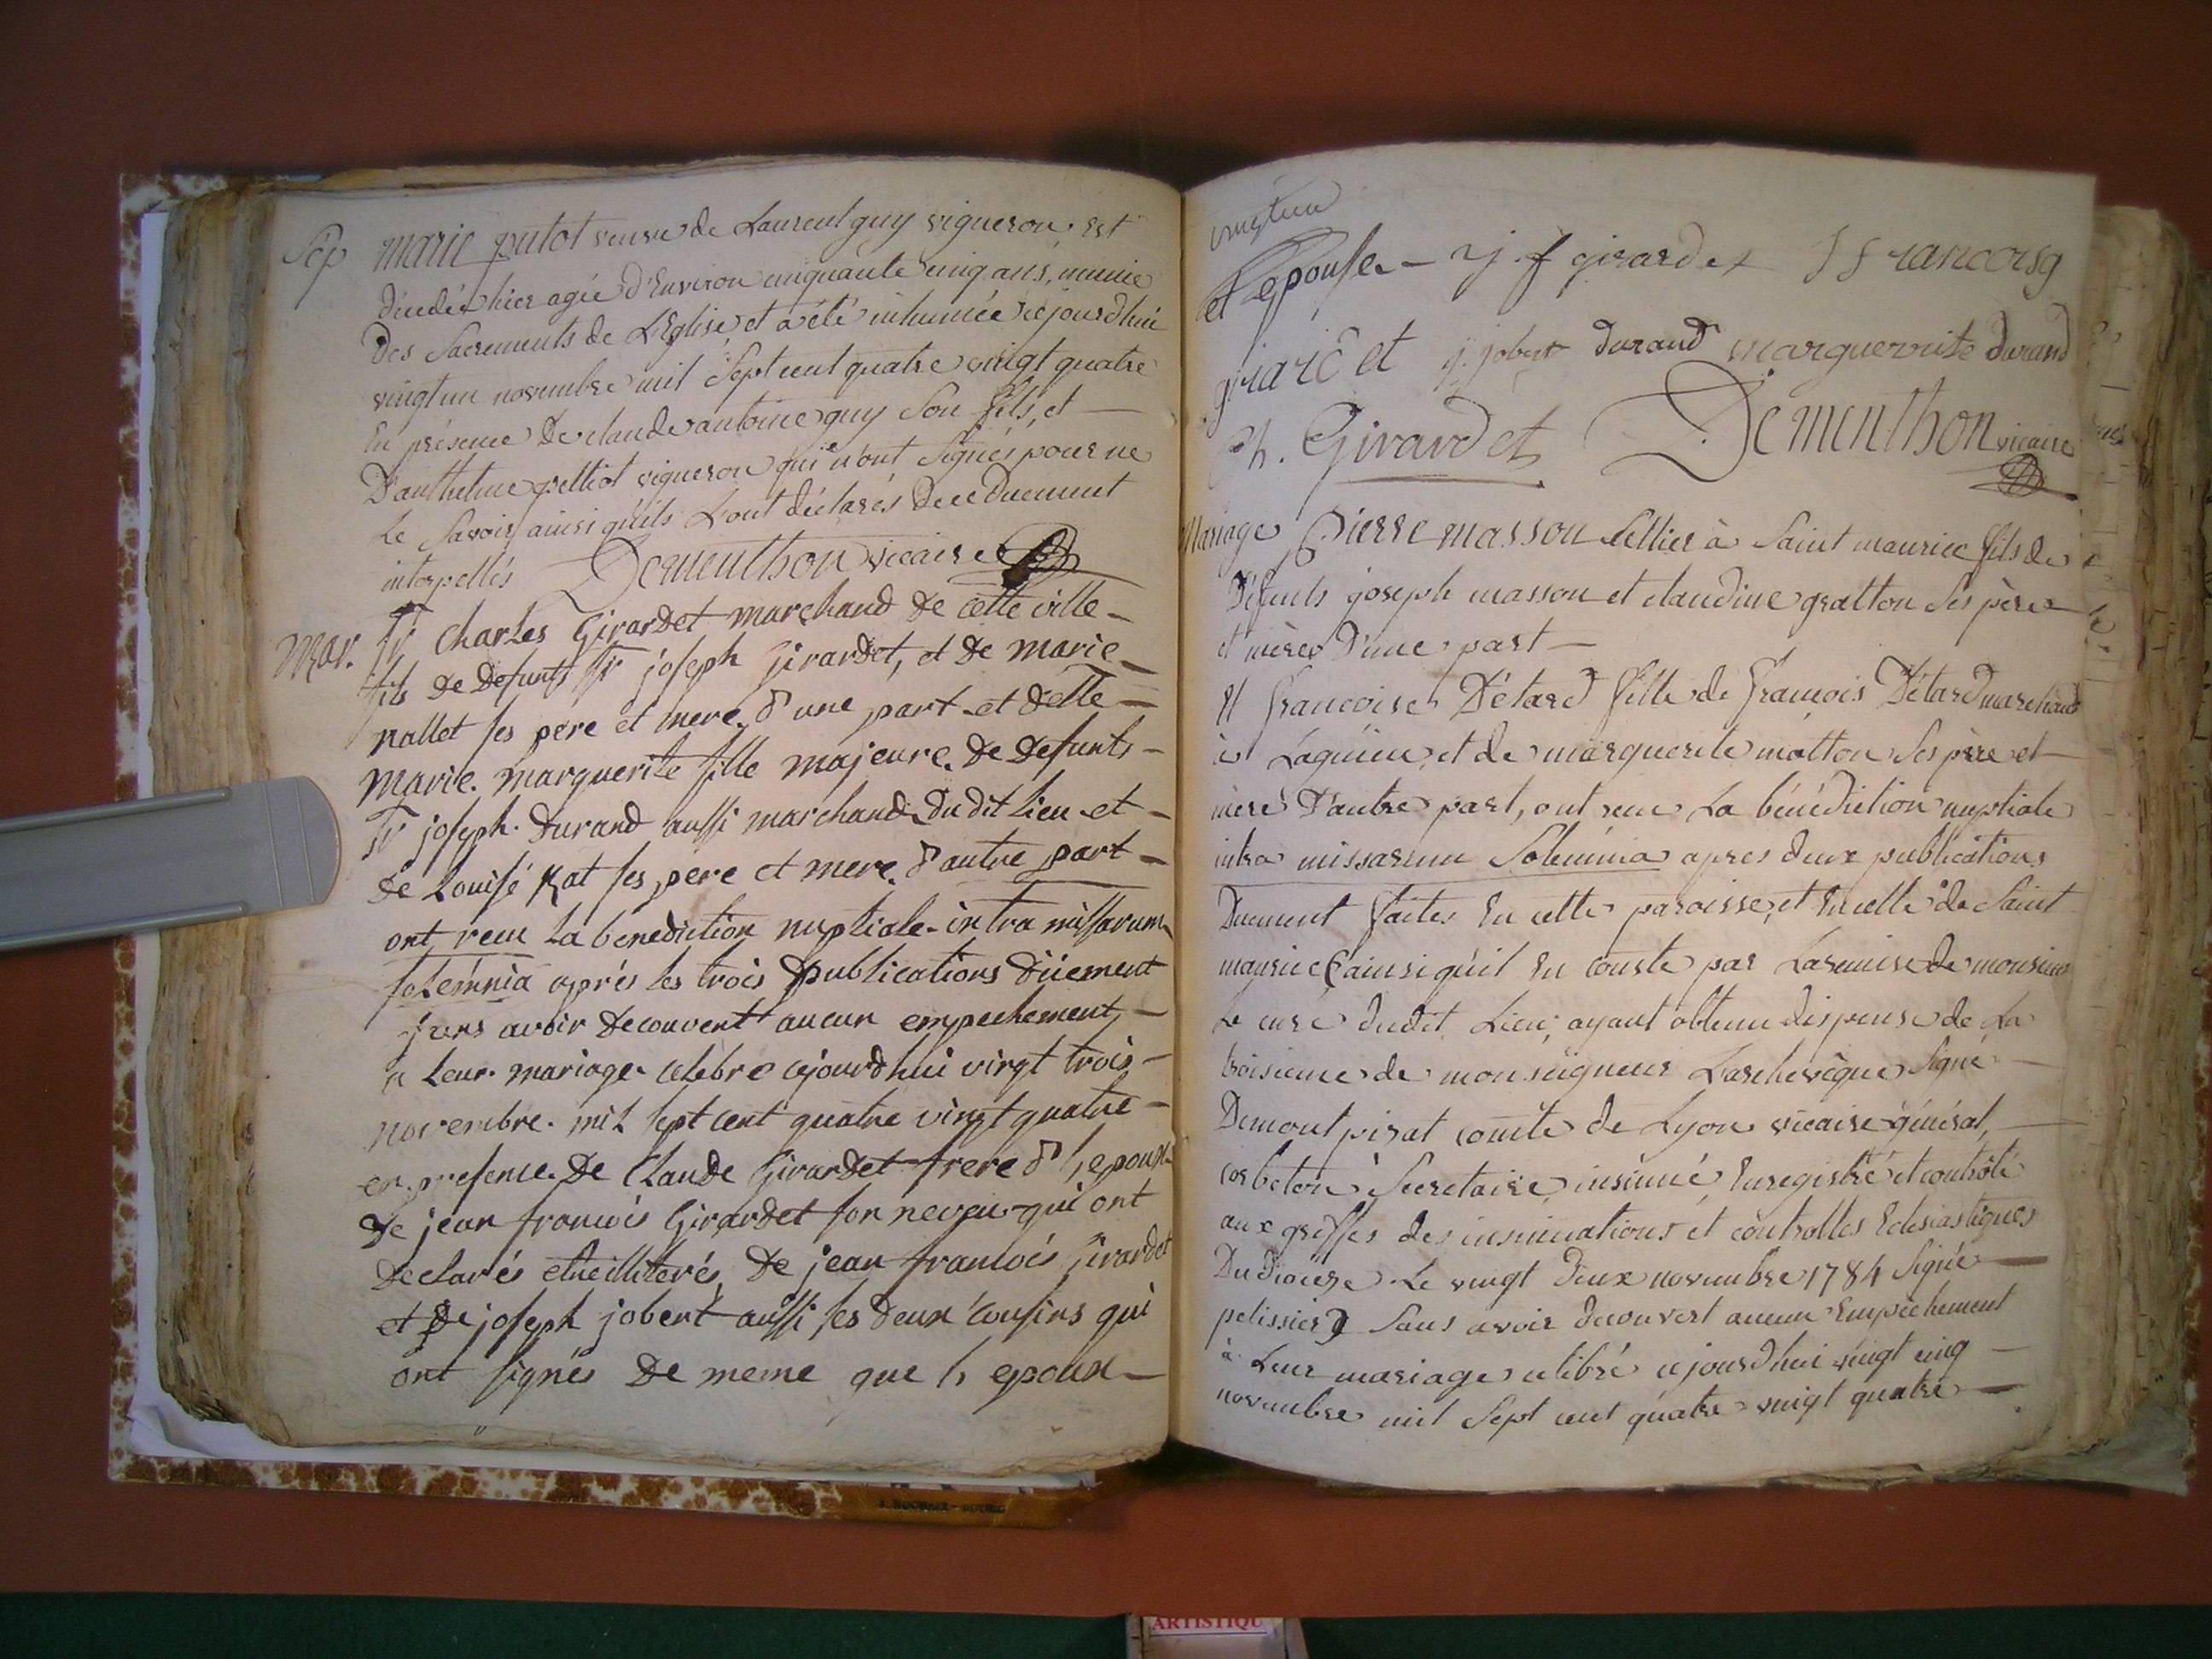 Sép marie putot veuve de Laurent guy vigneron est
décédée hier agée d'Environ cinquante cinq ans, munie
des Sacrements de L'Eglise, et a été inhumée cejourdhui
vingt un novembre mil Sept cent quatre vingt quatre
En présence de claude antoine guy Son fils, et —
D'anthelme pelliot vigneron qui n'ont Signés pour ne
Le Savoir, ainsi qu'ils L'ont déclarés de ce duement
interpellés Dementhon vicaire
Mar. Sr Charles Girardet marchand de cette ville —
fils de defunts Sr joseph Girardet, et de marie —
nallet ses pére et mere, d'une part et delle —
Marie Marguerite fille majeure de defunts —
Sr joseph Durand aussi marchand du dit Lieu et —
de Louise Rat ses pere et mere d'autre part —
ont reçu La benediction nuptiale intra missarum
solémnia aprés les trois publications düement
sans avoir decouvert aucun empechement, —
a Leur mariage celebre cejourdhui vingt trois —
novembre mil sept cent quatre vingt quatre —
en presence de Claude Girardet frere d l'epoux
de jean francois Girardet son neveu qui ont
declarés etre illiterés, de jean francois Girardet
et de joseph jobert aussi ses deux cousins qui
ont signés de meme que l'epoux —
vingt un
et Lepouse — j f girardet francois
girardet j. jobert durand marguerite durand
Ch. Girardet Dementhon vicaire
Mariage Pierre masson Sellier à Saint maurice fils de
Défunts joseph masson et claudine gratton Ses père
et mère D'une part —
Et francoise Détard fille de François Détard marchand
à Lagnieu, et de marguerite matton Ses père et
mère D'autre part, ont reçu La bénédiction nuptiale
intra missarum Solemnia apres deux publications
Duement faites En cette paroisse, et En celle de Saint
maurice (ainsi qu'il En conste par La remise de monsieur
Le curé dudit Lieu; ayant obtenu dispense de La
troisieme de monseigneur L'archevêque Signé —
Demontjorat comte de Lyon vicaire général, —
corbeton Secretaire, insinué, Enregistré et contrôlé
aux greffes des insinuations et controlles Eclesiastiques
Du diocese Le vingt Deux novembre 1784 Signé —
pelissier) Sans avoir decouvert aucun Empêchement
à Leur mariage celebré cejourdhui vingt cinq —
novembre mil Sept cent quatre vingt quatre —
ARTISTIQU